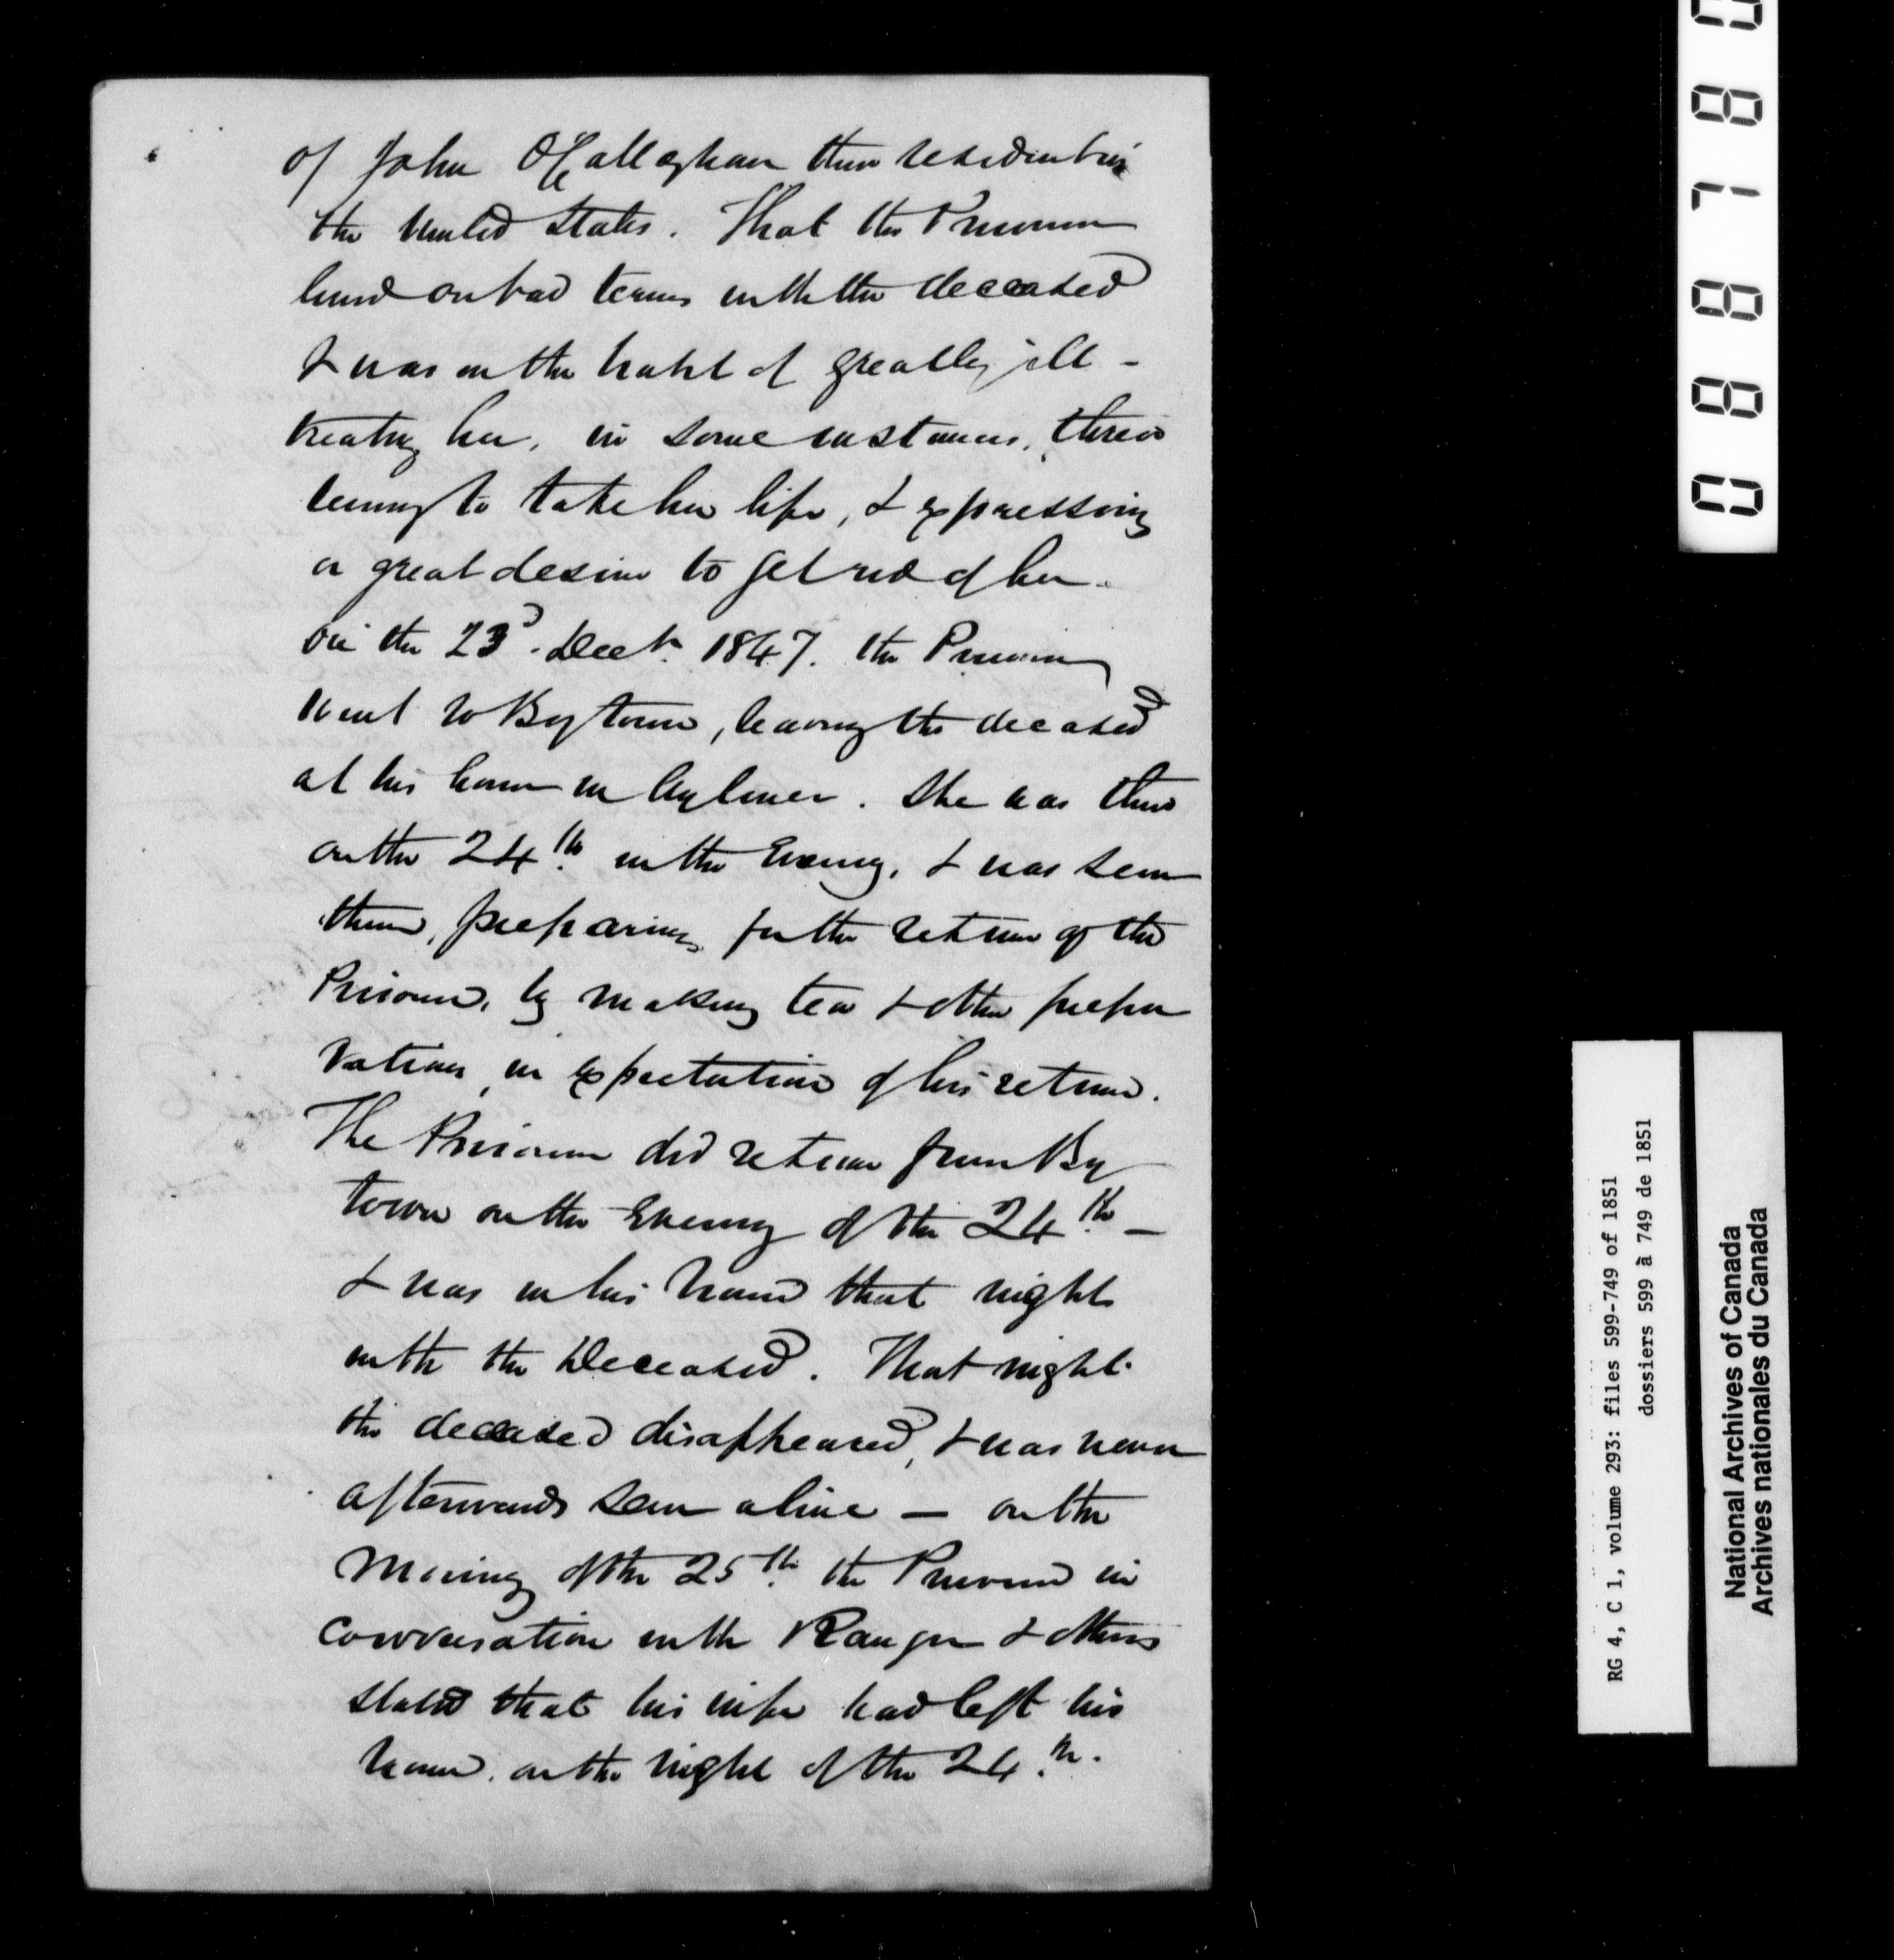 of John O'Callaghan then resident in
the United States. That the Prisoner
lived on bad terms with the deceased
& was in the habit of greatly ill-
treating her, in some instances, threa
tening to take her life, & expressing
a great desire to get rid of her.
On the 23d. Decr. 1847. the Prisoner
went to Bytown, leaving the deceased
at his house in Aylmer. She was there
on the 24th. in the Evening, & was seen
there, preparing for the return of the
Prisoner, by making tea & other prepa
rations, in expectation of his return.
The Prisoner did return from By
town on the Evening of the 24th. —
& was in his house that night
with the Deceased. That night
the deceased disappeared, & was never
afterwards seen alive — on the
Morning of the 25th. the Prisoner in
conversation with Ranger & others
stated that his wife had left his
house, on the night of the 24th.
088780
RG 4, C 1, volume 293: files 599-749 of 1851
dossiers 599 à 749 de 1851
National Archives of Canada
Archives nationales du Canada